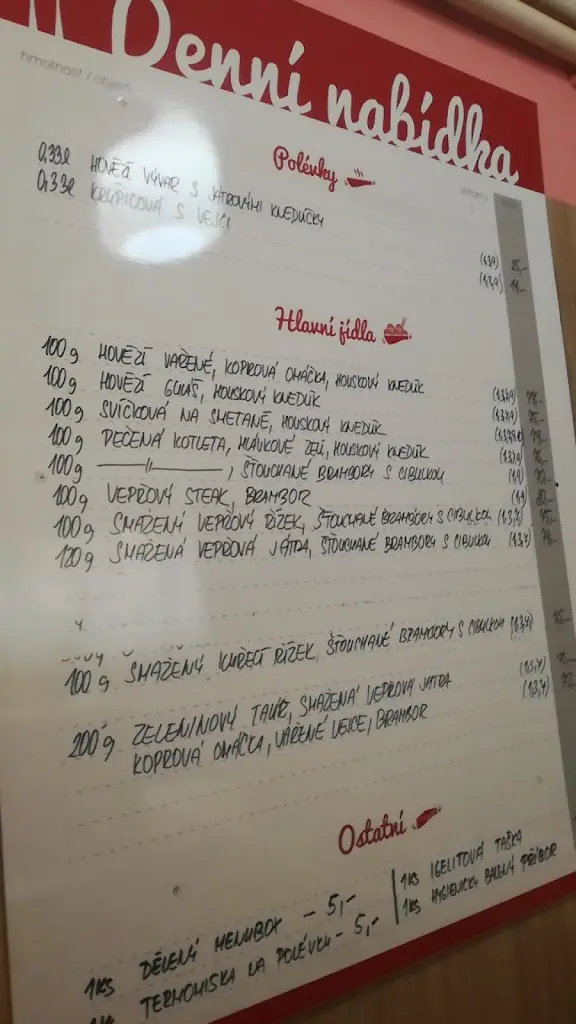 Denní nabídka
hmotnost / objem
Polévky
0,33l HOVĚZÍ VÝVAR S JÁTROVÝMI KNEDLÍČKY (1,3,9) 25,-
0,33l KRUPICOVÁ S VEJCI (1,3,9)
Hlavní jídla
100g HOVĚZÍ VAŘENÉ, KOPROVÁ OMÁČKA, HOUSKOVÝ KNEDLÍK
100g HOVĚZÍ GULÁŠ, HOUSKOVÝ KNEDLÍK
100g SVÍČKOVÁ NA SMETANĚ, HOUSKOVÝ KNEDLÍK
100g PEČENÁ KOTLETA, ZELÍ, HOUSKOVÝ KNEDLÍK
100g —— " ——, ŠŤOUCHANÉ BRAMBORY S CIBULKOU (1,9)
100g VEPŘOVÝ STEAK, BRAMBOR (1,9)
100g SMAŽENÝ VEPŘOVÝ ŘÍZEK, ŠŤOUCHANÉ BRAMBORY S CIBULKOU (1,3,7)
120g SMAŽENÁ VEPŘOVÁ JÁTRA, ŠŤOUCHANÉ BRAMBORY S CIBULKOU (1,3,7)
100g SMAŽENÝ KUŘECÍ ŘÍZEK, ŠŤOUCHANÉ BRAMBORY S CIBULKOU (1,3,7)
200g ZELENINOVÝ TALÍŘ, SMAŽENÁ VEPŘOVÁ JÁTRA
KOPROVÁ OMÁČKA, VAŘENÉ VEJCE, BRAMBOR
Ostatní
1KS DĚLENÝ MENUBOX - 5,-
TERMOMISKA NA POLÉVKU - 5,-
1KS IGELITOVÁ TAŠKA
1KS HYGIENICKY BALENÝ PŘÍBOR